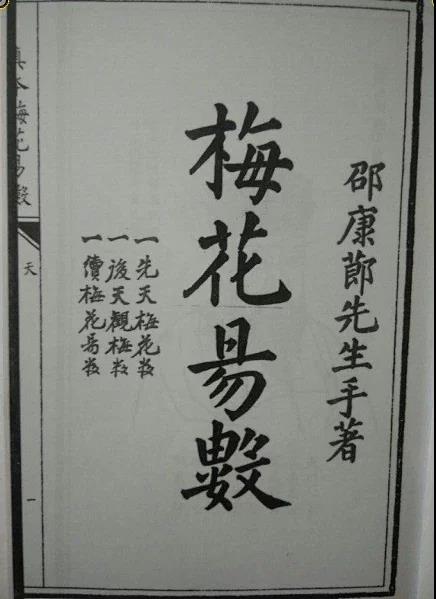 邵康節先生手著
梅花易數
一先天梅花数
一後天觀梅数
一續梅花易数
真本梅花易數
天
一